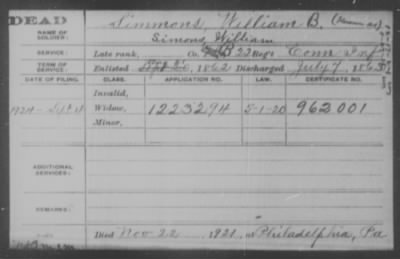 DEAD
Simmons, William B.
NAME OF SOLDIER:
Simons, William
SERVICE: Late rank, Co. B 22 Reg't Conn Inf
TERM OF SERVICE: Enlisted 1862 Discharged July 7, 1863
DATE OF FILING. CLASS. APPLICATION NO. LAW. CERTIFICATE NO.
Invalid,
1921 Widow, 1223294 5-1-20 962001
Minor,
ADDITIONAL SERVICES:
REMARKS:
Died Nov 22 1921, at Philadelphia, Pa